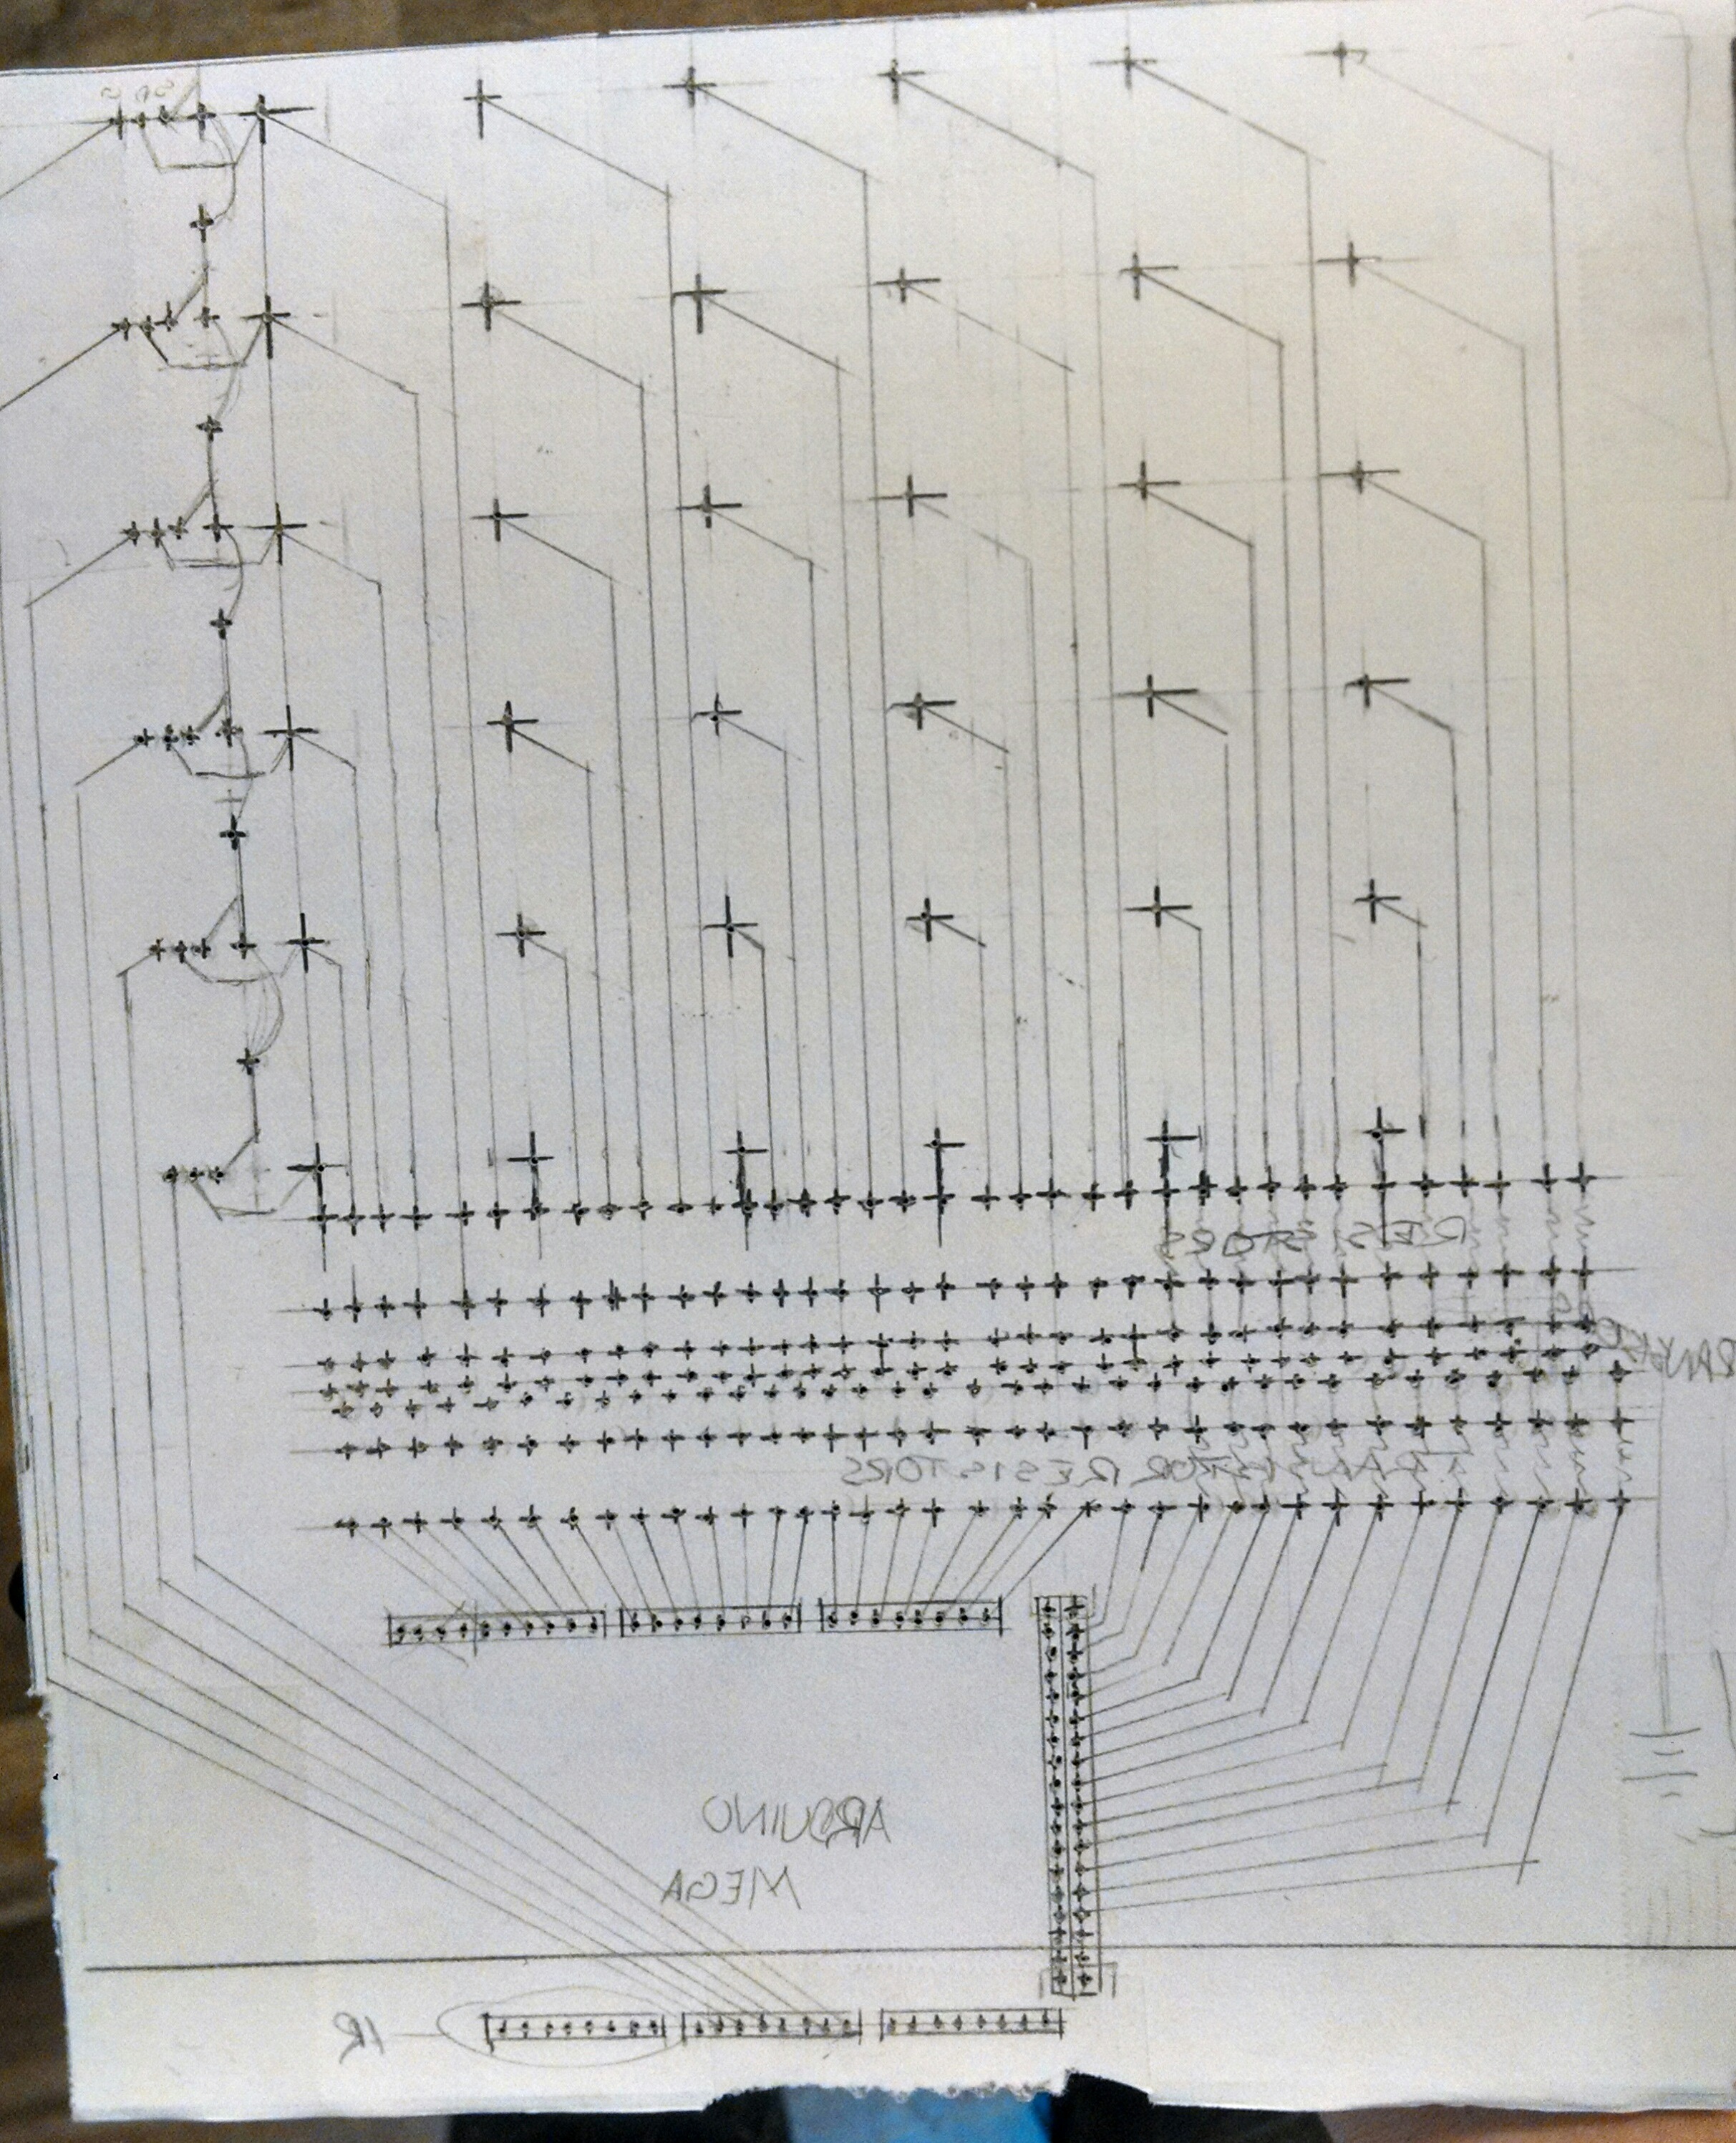 RESISTORS
TRANSISTOR RESISTORS
ARDUINO
MEGA
IR